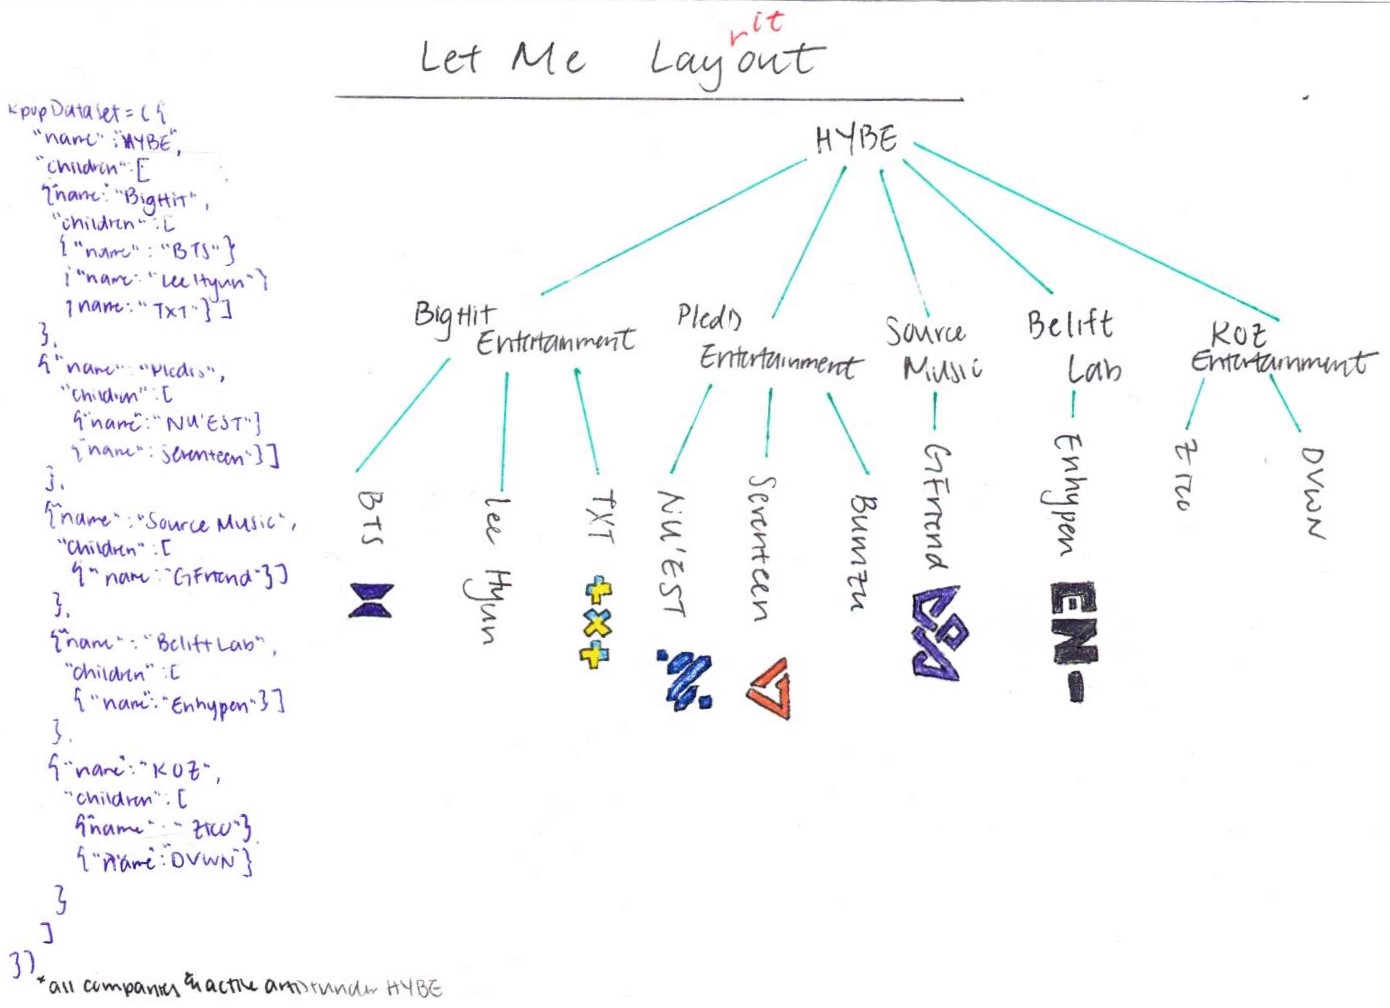 Let Me Layout
r it
kpopDataset = ({
"name" : "HYBE",
"children" : [
{"name" : "BigHit",
"children" : [
{"name" : "BTS"}
{"name : "Lee Hyun"}
{name : "TXT"}]
},
{"name" : "Pledis",
"children" : [
{"name" : "NU'EST"}
{"name" : Seventeen"}]
},
{"name" : "Source Music",
"children" : [
{"name : "GFriend"}]
},
{"name" : "Belift Lab",
"children" : [
{"name" : "Enhypen"}]
},
{"name" : "KOZ",
"children" : [
{"name" : "Zico"}
{"name" : "DVWN"}
}
]
})
*all companies & active artists under HYBE
HYBE
BigHit
Entertainment
Pledis
Entertainment
Source
Music
Belift
Lab
KOZ
Entertainment
BTS
Lee Hyun
TXT
NU'EST
Seventeen
Bumzu
GFriend
Enhypen
Zico
DVWN
+x+
EN-